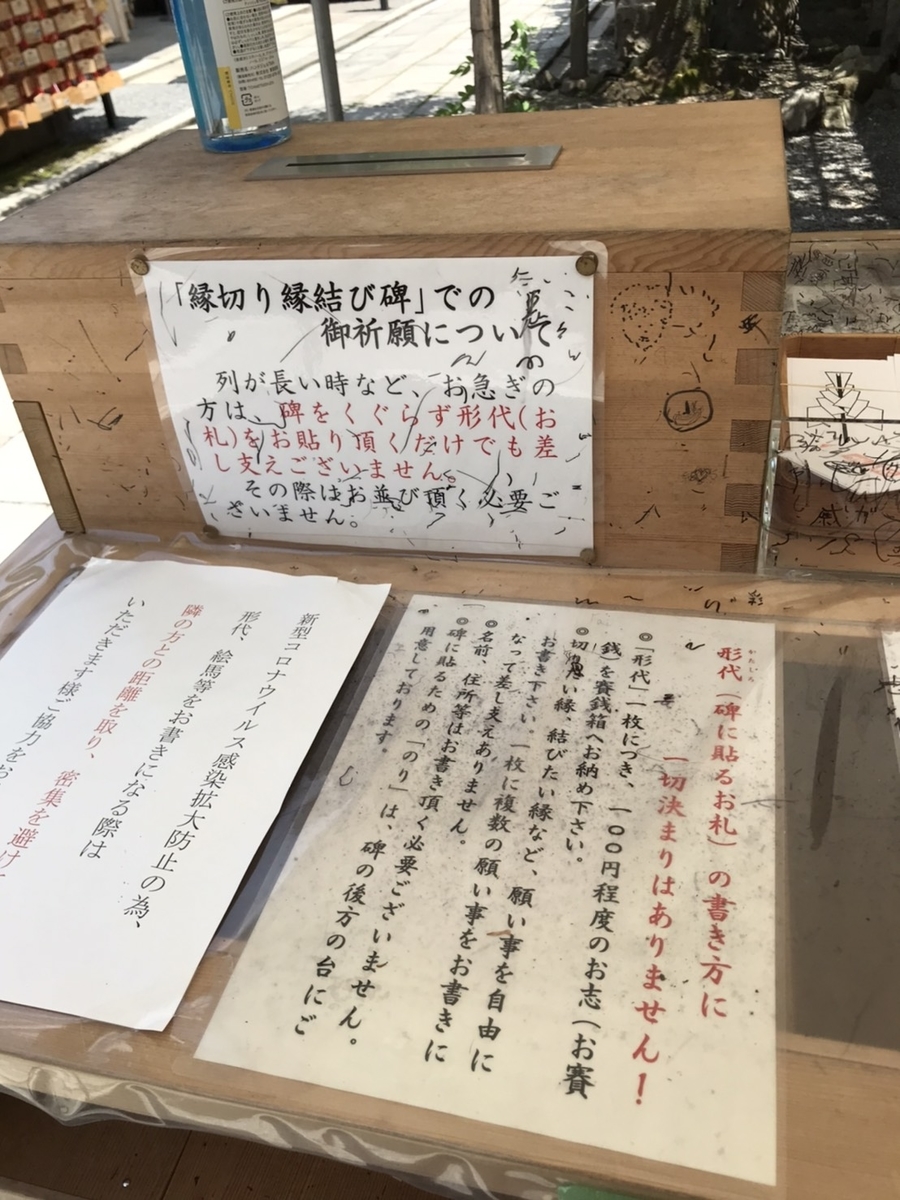 「縁切り縁結び碑」での
御祈願について
列が長い時など、お急ぎの
方は、碑をくぐらず形代(お
札)をお貼り頂くだけでも差
し支えございません。
その際はお並び頂く必要ご
ざいません。
形代(碑に貼るお札)の書き方に
かたしろ
一切決まりはありません!
◎「形代」一枚につき、一〇〇円程度のお志(お賽
銭)を賽銭箱へお納め下さい。
◎切りたい縁、結びたい縁など、願い事を自由に
お書き下さい。一枚に複数の願い事をお書きに
なって差し支えありません。
◎名前、住所等はお書き頂く必要ございません。
◎碑に貼るための「のり」は、碑の後方の台にご
用意しております。
新型コロナウイルス感染拡大防止の為、
形代、絵馬等をお書きになる際は
隣の方との距離を取り、密集を避けて
いただきます様ご協力をお